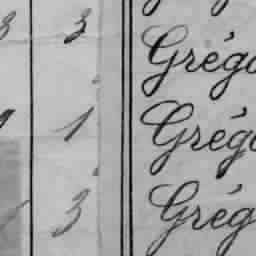 3 Grégo
1 Grég
3 Grég